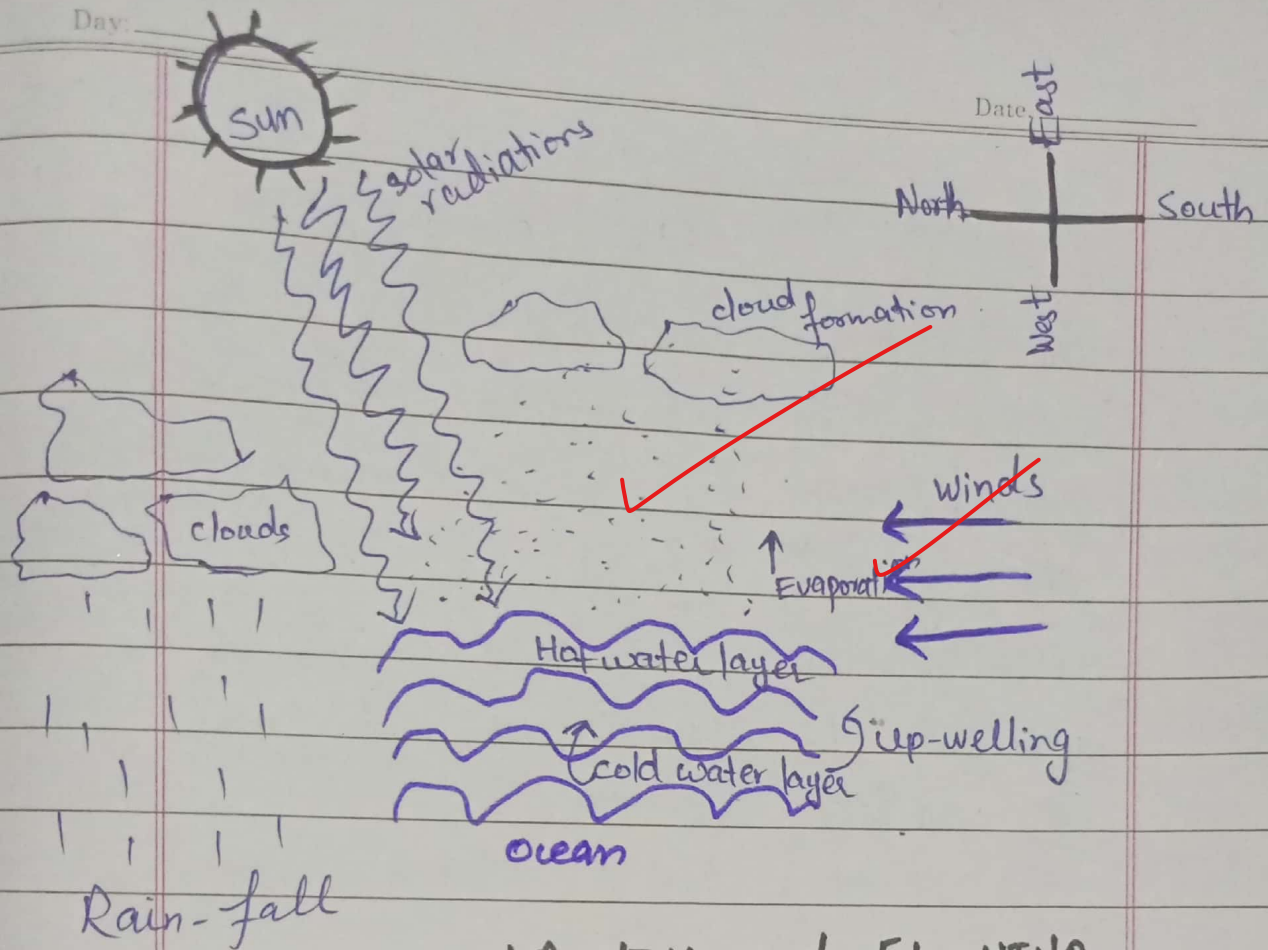 Day:
Date
East
Sun
solar
radiations
North
South
West
cloud formation
Winds
clouds
Evaporation
Hot water layer
up-welling
cold water layer
Ocean
Rain-fall